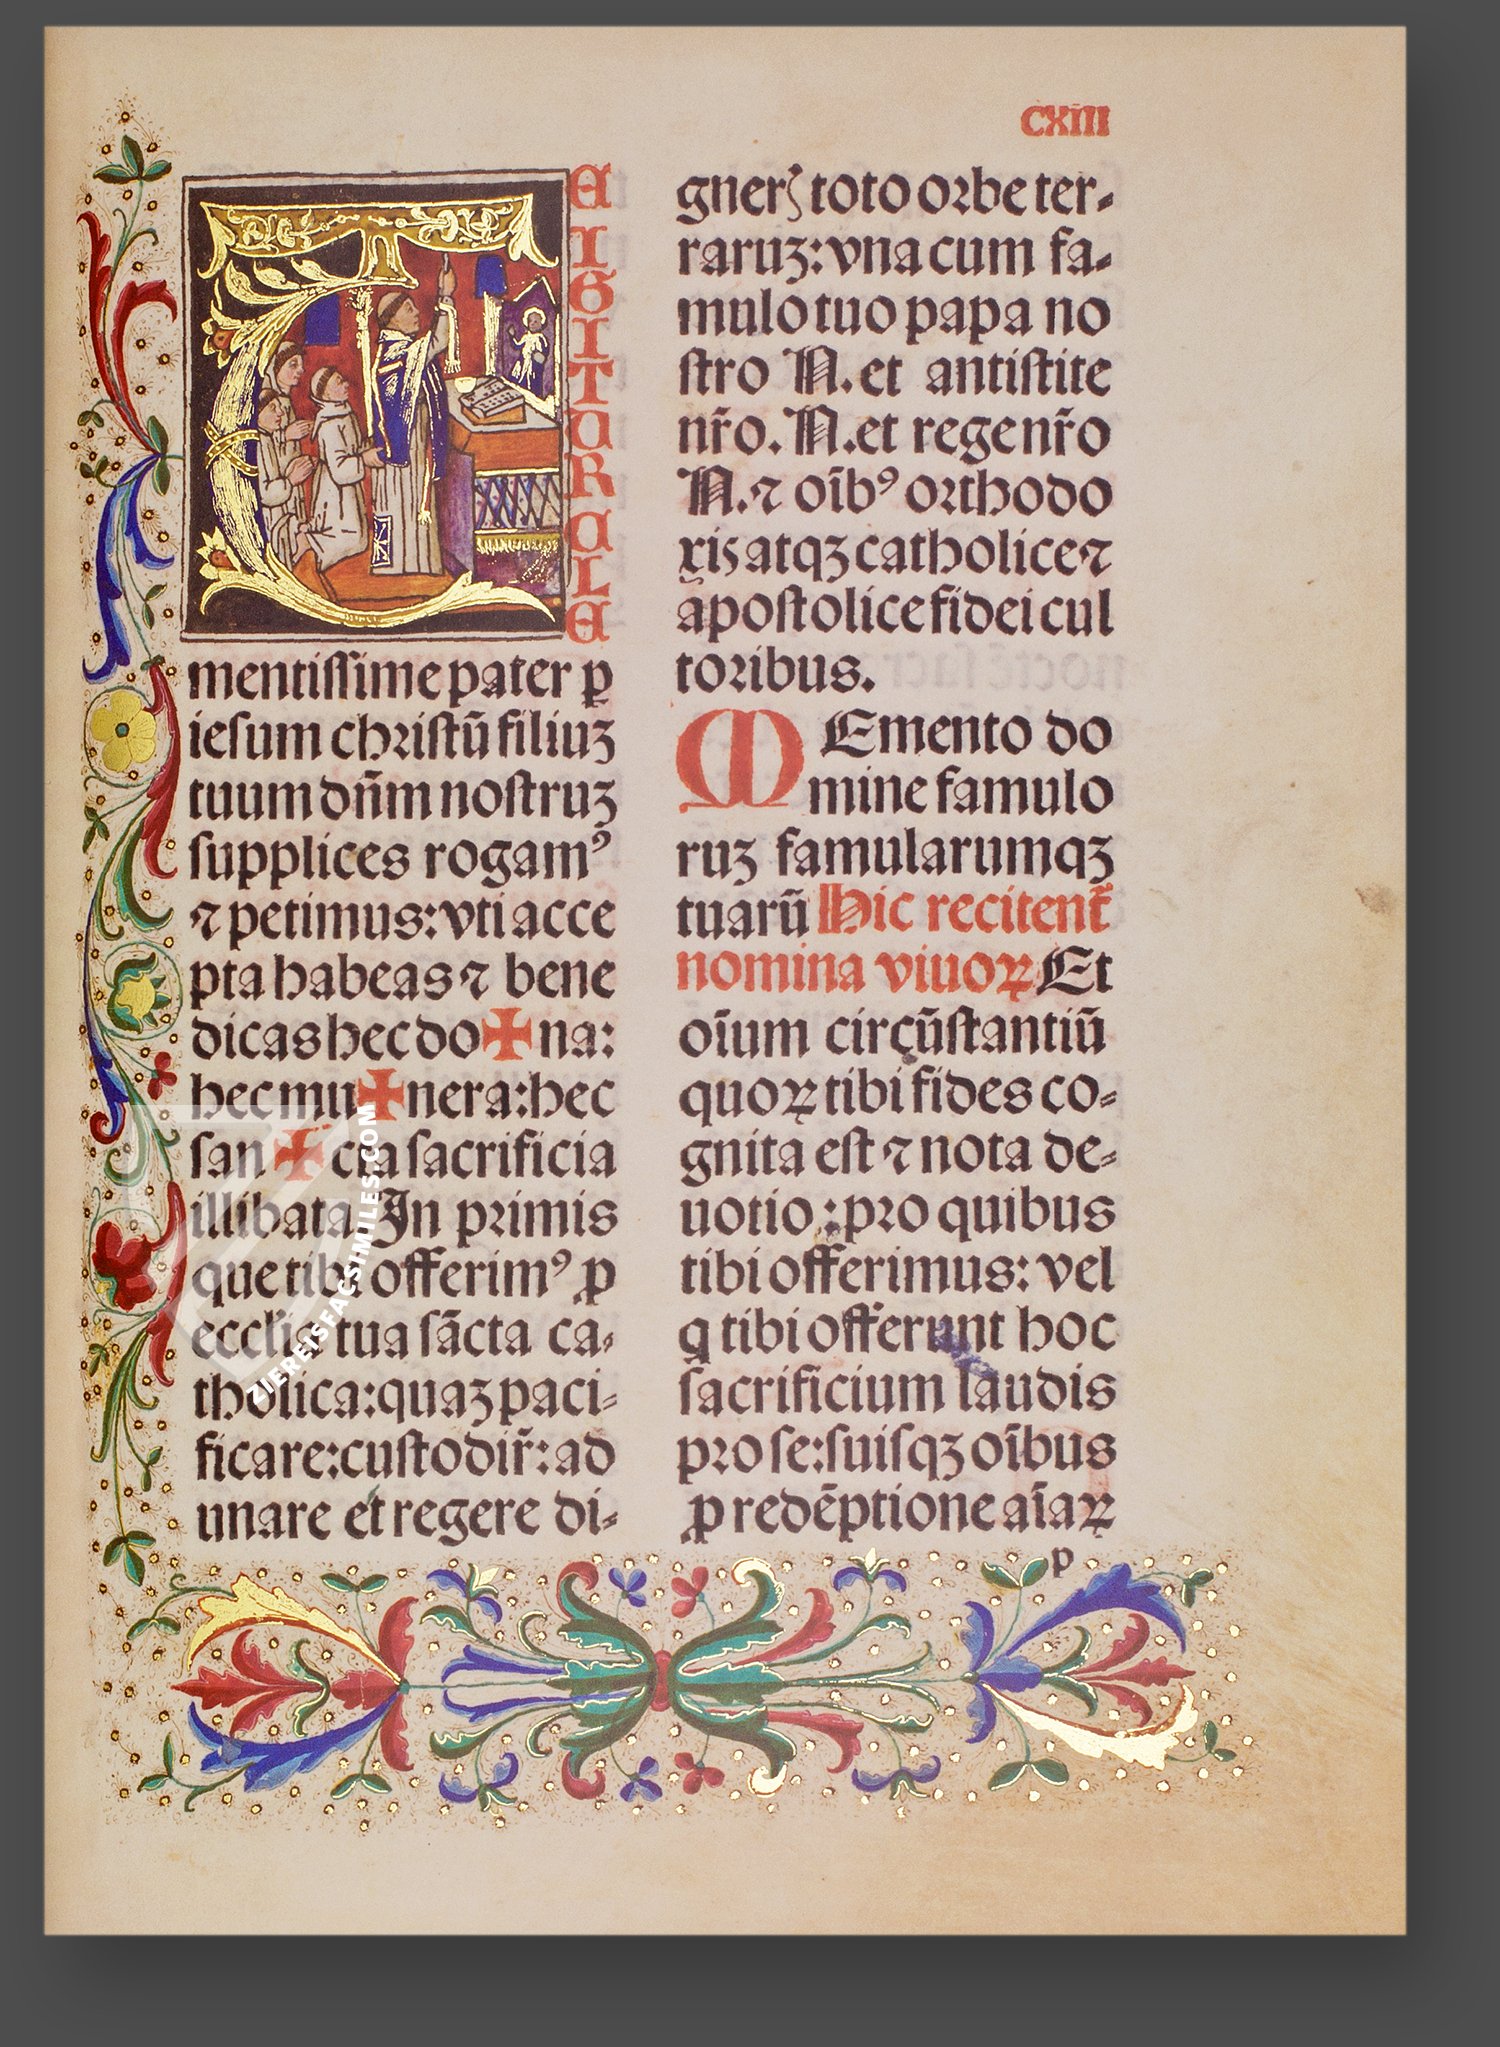 CXIII
T
E
I
G
I
T
U
R
C
L
E
mentiſſime pater ꝑ
ieſum chꝛiſtū filiuꝫ
tuum dn̄m noſtruꝫ
ſupplices rogamꝰ
⁊ petimus: vti acce
pta habeas ⁊ bene
dicas hec do✠na:
hec mu✠nera: hec
ſan✠cta ſacrificia
illibata. In pꝛimis
que tibi offerimꝰ ꝓ
eccl'ia tua ſācta ca⸗
tholica: quaꝫ paci⸗
ficare: cuſtodir̄: ad
unare et regere di⸗
gner꜊ toto oꝛbe ter⸗
raruꝫ: vna cum fa⸗
mulo tuo papa no
ſtro N. et antiſtite
nr̄o. N. et rege nr̄o
N. ⁊ oībꝰ oꝛthodo
xis atqꝫ catholice ⁊
apoſtolice fidei cul
toꝛibus.
MEmento do
mine famulo
ruꝫ famularumqꝫ
tuarū Hic recitent᷑
nomina viuoꝝ Et
oīum circūſtantiū
quoꝝ tibi fides co⸗
gnita eſt ⁊ nota de⸗
uotio: pꝛo quibus
tibi offerimus: vel
q tibi offerunt hoc
ſacrificium laudis
pꝛo ſe: ſuiſqꝫ oībus
ꝓ redēptione aīaꝝ
p
ZIEREISFACSIMILES.COM